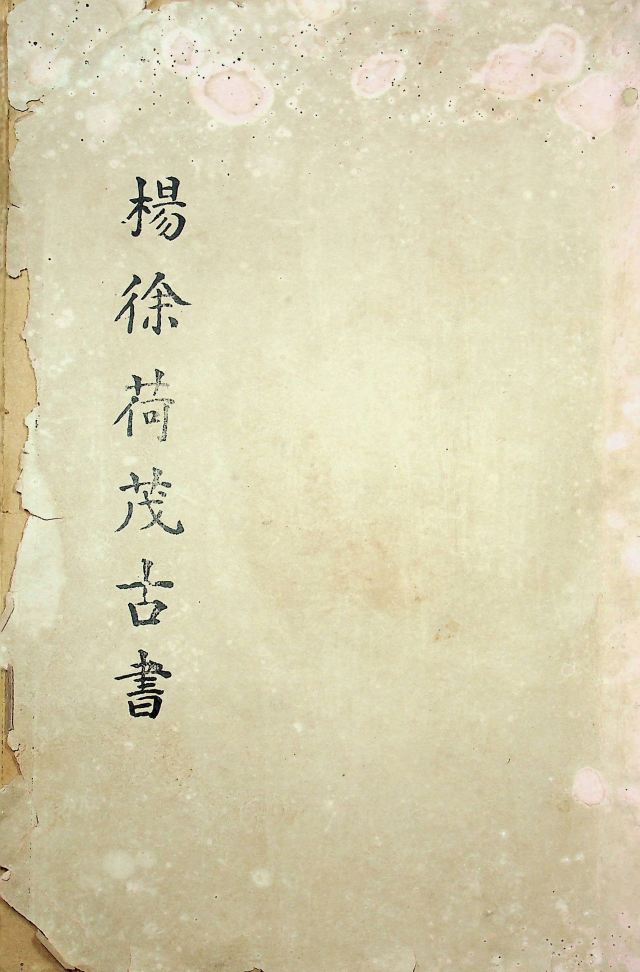 楊徐荷茂古書